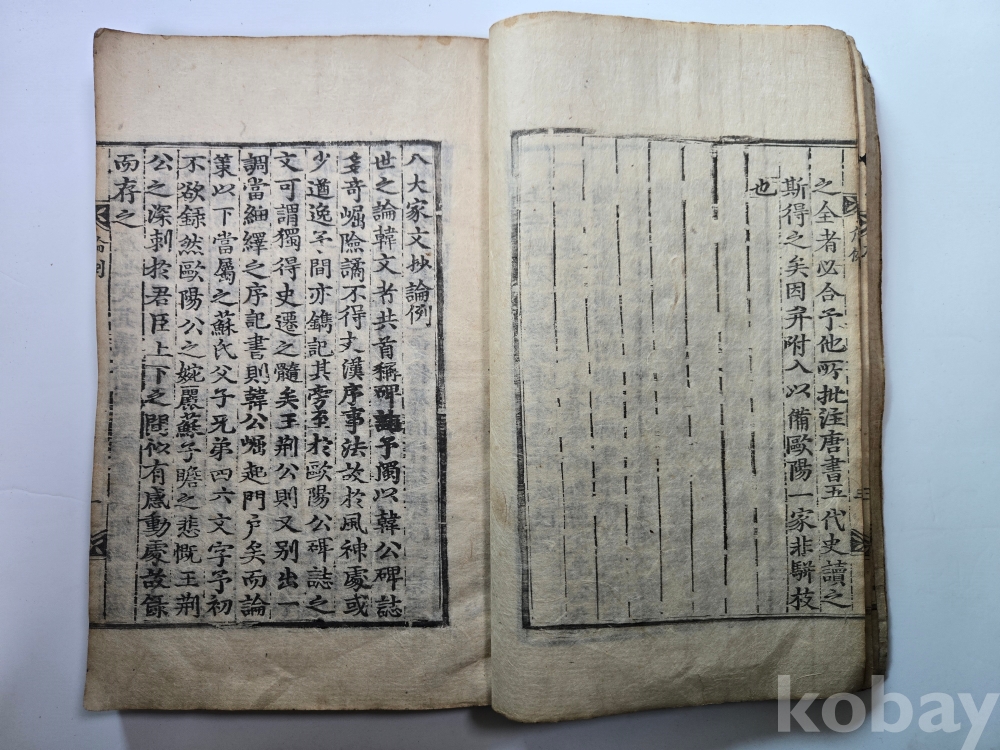 之全者必合予他所批注唐書五代史讀之
斯得之矣因幷附入以備歐陽一家非騈枝
也
八大家文抄論例
世之論韓文者共首稱碑誌予獨以韓公碑誌
多奇崛險譎不得史漢序事法故於風神處或
少遒逸予間亦鐫記其旁至於歐陽公碑誌之
文可謂獨得史遷之髓矣王荊公則又別出一
調當紬繹之序記書則韓公崛起門戶矣而論
策以下當屬之蘇氏父子兄弟四六文字予初
不欲錄然歐陽公之婉麗蘇子瞻之悲慨王荊
公之深刺於君臣上下之間似有感動處故錄
而存之
論例
一
三
kobay